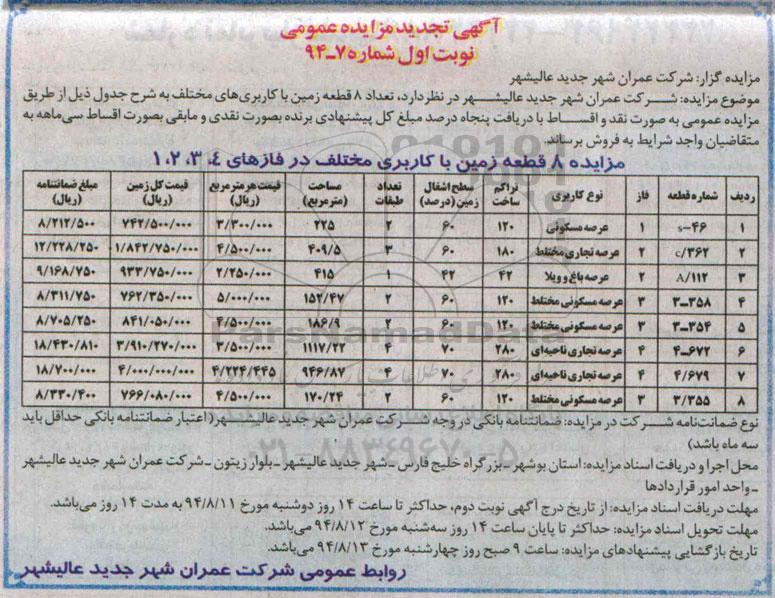 آگهی تجدید مزایده عمومی
نوبت اول شماره ۷۵ـ۹۴
مزایده گزار: شرکت عمران شهر جدید عالیشهر
موضوع مزایده: شرکت عمران شهر جدید عالیشهر در نظر دارد، تعداد ۸ قطعه زمین با کاربری‌های مختلف به شرح جدول ذیل از طریق
مزایده عمومی به صورت نقد و اقساط با دریافت پنجاه درصد مبلغ کل پیشنهادی برنده بصورت نقدی و مابقی بصورت اقساط سی‌ماهه به
متقاضیان واجد شرایط به فروش برساند.
مزایده ۸ قطعه زمین با کاربری مختلف در فازهای ۴، ۳، ۲، ۱
ردیف شماره قطعه فاز نوع کاربری تراکم ساخت سطح اشغال زمین (درصد) تعداد طبقات مساحت (مترمربع) قیمت هر مترمربع (ریال) قیمت کل زمین (ریال) مبلغ ضمانتنامه (ریال)
۱ s-۴۶ ۱ عرصه مسکونی ۱۲۰ ۶۰ ۲ ۲۲۵ ۳/۳۰۰/۰۰۰ ۷۴۲/۵۰۰/۰۰۰ ۸/۲۱۲/۵۰۰
۲ c/۳۶۲ ۲ عرصه تجاری مختلط ۱۸۰ ۶۰ ۳ ۴۰۹/۵ ۴/۵۰۰/۰۰۰ ۱/۸۴۲/۷۵۰/۰۰۰ ۱۲/۲۲۸/۲۵۰
۳ A/۱۱۲ ۲ عرصه باغ و ویلا ۴۲ ۴۲ ۱ ۴۱۵ ۲/۲۵۰/۰۰۰ ۹۳۳/۷۵۰/۰۰۰ ۹/۱۶۸/۷۵۰
۴ ۳ـ۳۵۸ ۳ عرصه مسکونی مختلط ۱۲۰ ۶۰ ۲ ۱۵۲/۴۷ ۵/۰۰۰/۰۰۰ ۷۶۲/۳۵۰/۰۰۰ ۸/۳۱۱/۷۵۰
۵ ۳ـ۳۵۴ ۳ عرصه مسکونی مختلط ۱۲۰ ۶۰ ۲ ۱۸۶/۹ ۴/۵۰۰/۰۰۰ ۸۴۱/۰۵۰/۰۰۰ ۸/۷۰۵/۲۵۰
۶ ۴ـ۶۷۲ ۴ عرصه تجاری ناحیه‌ای ۲۸۰ ۷۰ ۴ ۱۱۱۷/۲۲ ۳/۵۰۰/۰۰۰ ۳/۹۱۰/۲۷۰/۰۰۰ ۱۸/۴۳۰/۸۱۰
۷ ۴/۶۷۹ ۴ عرصه تجاری ناحیه‌ای ۲۸۰ ۷۰ ۴ ۹۴۶/۸۷ ۴/۲۲۴/۴۴۵ ۴/۰۰۰/۰۰۰/۰۰۰ ۱۸/۷۰۰/۰۰۰
۸ ۳/۳۵۵ ۳ عرصه مسکونی مختلط ۱۲۰ ۶۰ ۲ ۱۷۰/۲۴ ۴/۵۰۰/۰۰۰ ۷۶۶/۰۸۰/۰۰۰ ۸/۳۳۰/۴۰۰
نوع ضمانت‌نامه شرکت در مزایده: ضمانتنامه بانکی در وجه شرکت عمران شهر جدید عالیشهر (اعتبار ضمانتنامه بانکی حداقل باید
سه ماه باشد)
محل اجرا و دریافت اسناد مزایده: استان بوشهر ـ بزرگراه خلیج فارس ـ شهر جدید عالیشهر ـ بلوار زیتون ـ شرکت عمران شهر جدید عالیشهر
ـ واحد امور قراردادها
مهلت دریافت اسناد مزایده: از تاریخ درج آگهی نوبت دوم، حداکثر تا ساعت ۱۴ روز دوشنبه مورخ ۹۴/۸/۱۱ به مدت ۱۴ روز می‌باشد.
مهلت تحویل اسناد مزایده: حداکثر تا پایان ساعت ۱۴ روز سه‌شنبه مورخ ۹۴/۸/۱۲ می‌باشد.
تاریخ بازگشایی پیشنهادهای مزایده: ساعت ۹ صبح روز چهارشنبه مورخ ۹۴/۸/۱۳ می‌باشد.
روابط عمومی شرکت عمران شهر جدید عالیشهر
ParsNamadData
۰۲۱-۸۸۳۴۹۶۷۰-۵